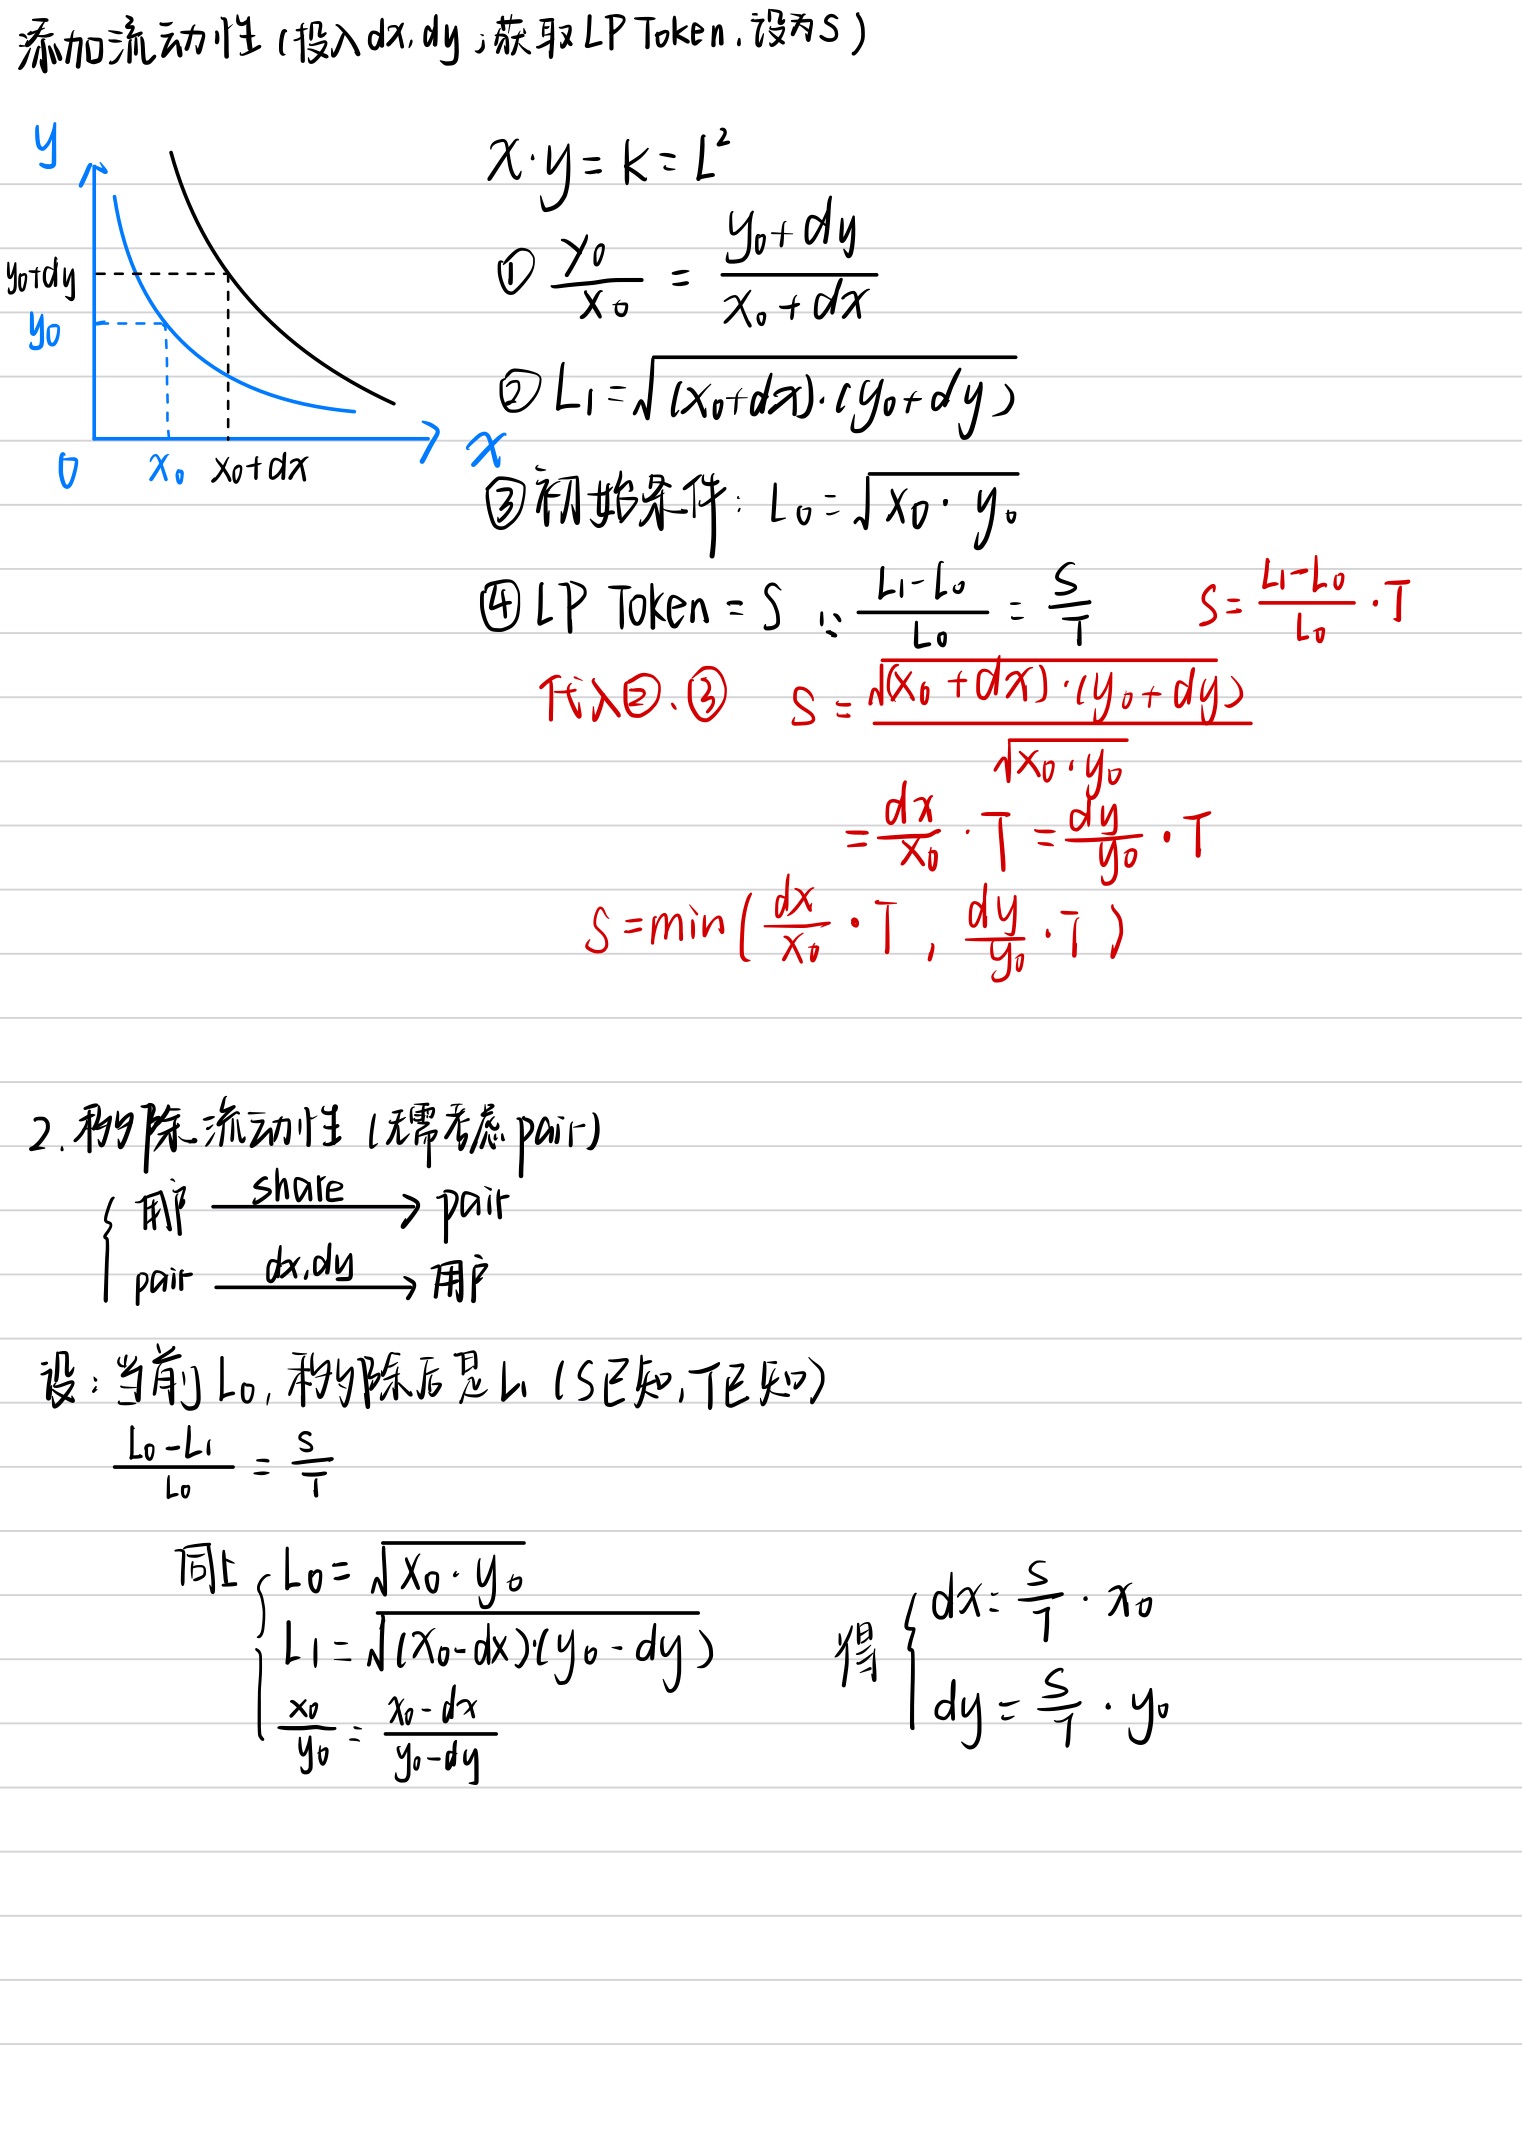 添加流动性(投入dx,dy;获取LP Token,设为S)
y
y₀+dy
y₀
0
x₀
x₀+dx
x
x·y=K=L²
① y₀/x₀ = (y₀+dy)/(x₀+dx)
② L₁=√((x₀+dx)·(y₀+dy))
③ 初始条件: L₀=√(x₀·y₀)
④ LP Token = S ∵ (L₁-L₀)/L₀ = S/T S=(L₁-L₀)/L₀·T
代入②、③ S=√((x₀+dx)·(y₀+dy))/√(x₀·y₀)
=dx/x₀·T=dy/y₀·T
S=min(dx/x₀·T, dy/y₀·T)
2.移除流动性(无需考虑pair)
用户 share → pair
pair dx,dy → 用户
设:当前L₀,移除后是L₁(S已知,T已知)
(L₀-L₁)/L₀ = S/T
同上 { L₀=√(x₀·y₀)
L₁=√((x₀-dx)·(y₀-dy))
x₀/y₀=(x₀-dx)/(y₀-dy)
得 { dx=S/T·x₀
dy=S/T·y₀